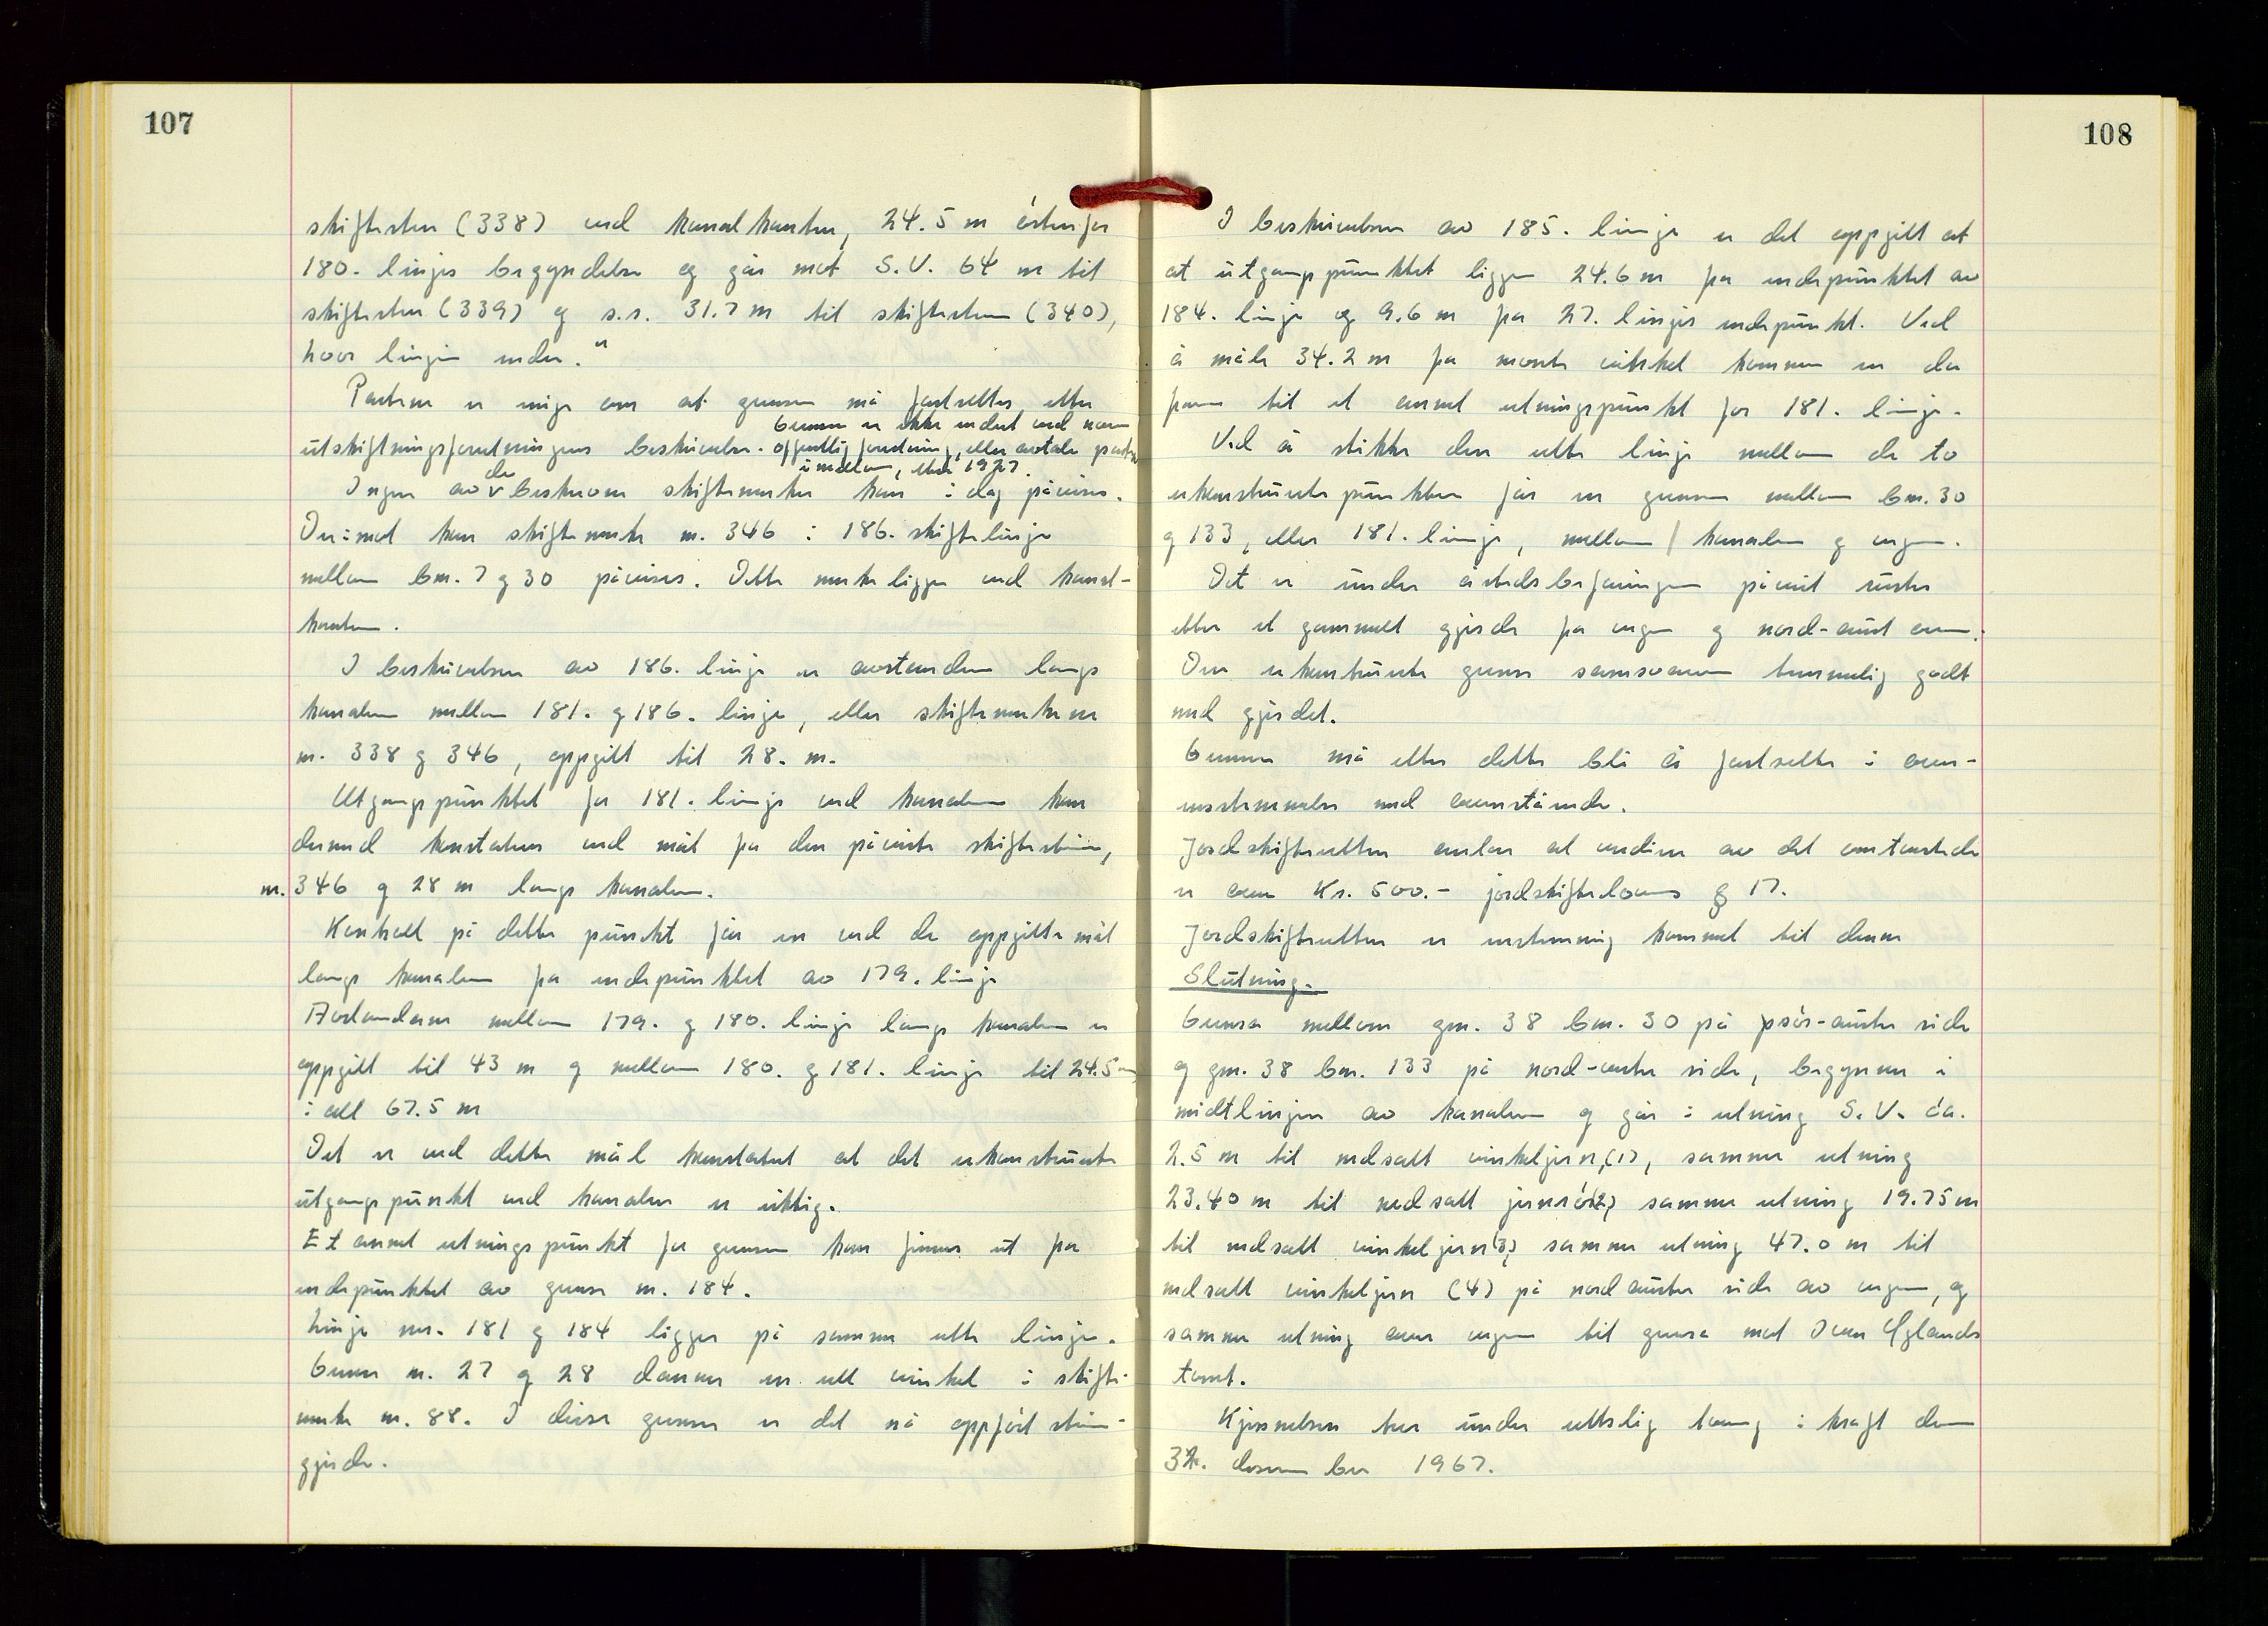 107
skiftestein (338) ved kanalkanten, 24.5 m østenfor
180. linjes begyndelse og går mot S.V. 64 m til
skiftestein (339) og s.r. 31.7 m til skiftestein (340),
hvor linjen ender."
Partene er enige om at grensen må fastsettes etter
utskiftningsforretningens beskrivelse. Grensen er ikke endret ved noen
offentlig forretning, eller avtale partene
imellom, etter 1927.
Ingen av de beskrevne skiftemerker kan i dag påvises.
Derimot kan skiftemerke nr. 346 i 186. skiftelinje
mellom bnr. 7 og 30 påvises. Dette merke ligger ved kanal-
kanten.
I beskrivelsen av 186. linje er avstanden langs
kanalen mellom 181. og 186. linje, eller skiftemerkene
nr. 338 og 346, oppgitt til 28. m.
Utgangspunktet for 181. linje ved kanalen kan
dermed konstateres ved mål fra den påviste skiftestein,
nr. 346 og 28 m langs kanalen.
Kontroll på dette punkt får en ved de oppgitte mål
langs kanalen fra endepunktet av 179. linje
Avstandene mellom 179. og 180. linje langs kanalen er
oppgitt til 43 m og mellom 180. og 181. linje til 24.5 m
i alt 67.5 m
Det er ved dette mål konstatert at det rekonstruerte
utgangspunkt ved kanalen er riktig.
Et annet retningspunkt for grensen kan finnes ut fra
endepunktet av grense nr. 184.
Linje nr. 181 og 184 ligger på samme rette linje.
Grense nr. 27 og 28 danner en rett vinkel i skifte-
merke nr. 88. I disse grenser er det nå oppført stein-
gjerde.
108
I beskrivelsen av 185. linje er det oppgitt at
at utgangspunktet ligger 24.6 m fra endepunktet av
184. linje og 9.6 m fra 27. linjes endepunkt. Ved
å måle 34.2 m fra nevnte vinkel kommer en da
fram til et annet retningspunkt for 181. linje.
Ved å stikke den rette linje mellom de to
rekonstruerte punkter får en grensen mellom bnr. 30
og 133, eller 181. linje, mellom kanalen og vegen.
Det er under åstedsbefaringen påvist rester
etter et gammelt gjerde fra vegen og nord-aust om.
Den rekonstruerte grense samsvarer temmelig godt
med gjerdet.
Grensen må etter dette bli å fastsette i over-
ensstemmelse med ovenstående.
Jordskifteretten anslår at verdien av det omtvistede
er over kr. 500.- jordskiftelovens § 17.
Jordskifteretten er enstemmig kommet til denne
Slutning.
Grensa mellom gnr. 38 bnr. 30 på sør-austre side
og gnr. 38 bnr. 133 på nord-vestre side, begynner i
midtlinjen av kanalen og går i retning S.V. ca.
2.5 m til nedsatt vinkeljern,(1), samme retning
23.40 m til nedsatt jernrør(2), samme retning 19.75 m
til nedsatt vinkeljern(3), samme retning 47.0 m til
nedsatt vinkeljern (4) på nord austre side av vegen, og
samme retning over vegen til grense mot Iver Yglands
tomt.
Kjennelsen trer under rettslig tvang i kraft den
31. desember 1967.